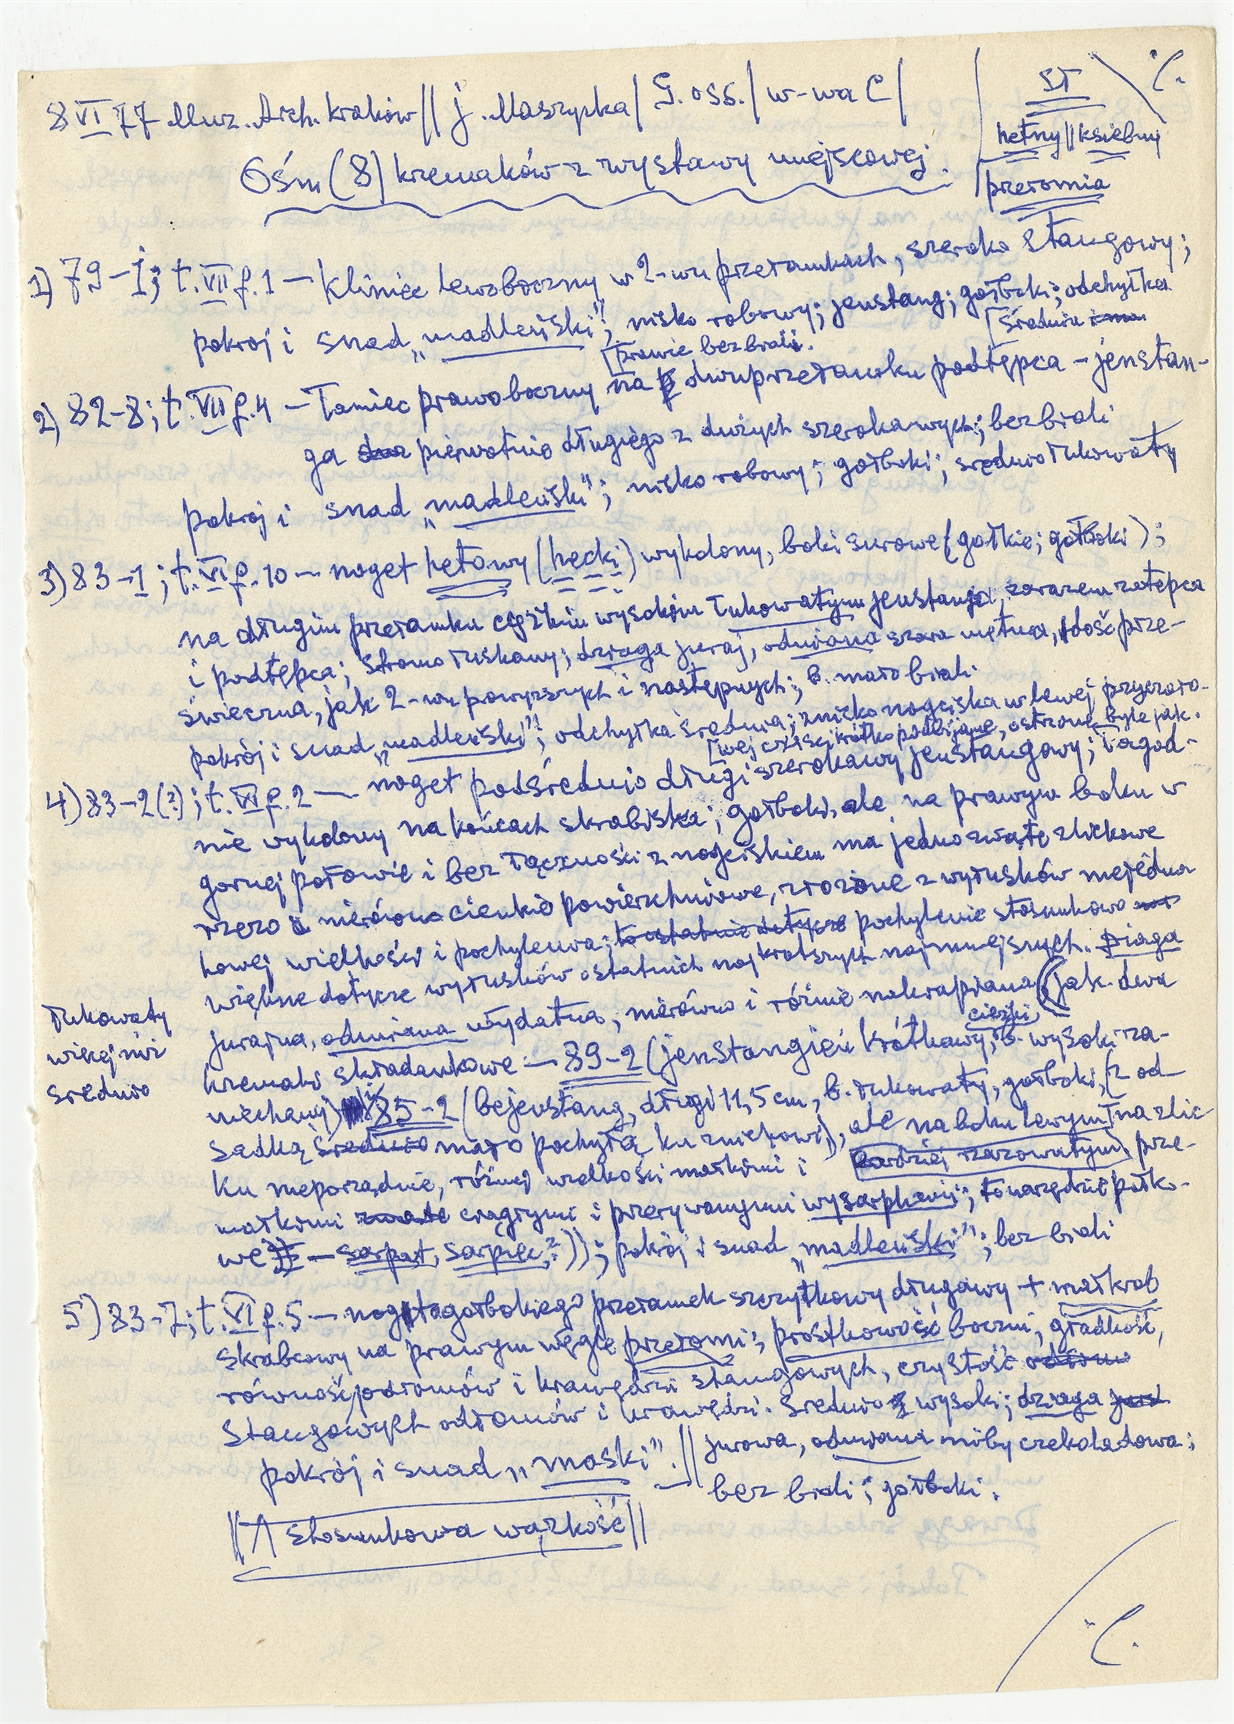 8 VI 77 Muz. Arch. Kraków || j. Maszycka | G. oss. | w-wa C |
ST
hetny || ksiebny
przeromia
Ośm (8) krzemaków z wystawy miejscowej.
1) 79-1; t. VII f. 1 — kliniec lewoboczny w 2-wu przełamkach, szeroko stangowy;
pokrój i snad „madleński"; nisko robowy; jenstang; gołboki; odchyłka
[średnia
[prawie bez brali.
2) 82-8; t. VII f. 4 — Łamiec prawoboczny na dwuprzełamku podtępca — jenstan-
ga pierwotnie długiego z dużych szerokawych; bez brali
pokrój i snad „madleński"; nisko robowy; gołboki; srednio łukowaty
3) 83-1; t. VI f. 10 — noget hetowy (hecki) wykdony, boki surowe (gołkie; gołboki);
na długim przełamku ciężkim wysokim łukowatym jenstanga, zarazem zatępca
i podtępca; stromo łuskany; dziaga juraj, odmiana szara mętna, dość prze-
świeczna, jak 2-wu powyższych i następnych; b. mało brali.
pokrój i snad „madleński"; odchyłka średnia; zniсko nogciska w lewej przyczoło-
[wej części krótko podbijane, ostrone byle jak.
4) 83-2(?); t. VI f. 2 — noget podśrednio długi szerokawy jenstangowy; łagod-
nie wykdony na końcach skrabiska; gołboki, ale na prawym boku w
gornej połowie i bez łączności z nogciskiem ma jedno zwałę zlickowe
rzezo nierówno cienkie powierzchniowe, złożone z wyłusków niejedna
kowej wielkości i pochylenia; to ostatnie dotycze pochylenie stosunkowo
większe dotycze wyłusków ostatnich najkrótszych najmniejszych. Dziaga
jurajna, odmiana wydatna, nierówno i różnie nakrapiana (jak dwa
łukowaty
więcej niż
srednio
krzemaki składankowe — 89-2 (jenstangień krótkawy, ciężki, b. wysoki za-
niechany) 85-2 (bejenstang, długi 11,5 cm, b. łukowaty, gołboki, [z od-
sadką średnio mało pochyłą ku znickowi), ale na boku lewym [na zlic
ku nieporządnie, różnej wielkości małkimi i bardziej razowatym prze-
małkimi ciągłymi i przerywanymi wysarpkami; towarzędzie półko-
we — sarpat, sarpiec?)); pokrój i snad „madleński"; bez brali
5) 83-7; t. VI f. 5 — nogtogołbokiego przełamek szczytkowy długawy + małkrob
skrabcowy na prawym węgle przełomi; prostkowość boczni, gładkość,
równość podłomów i krawędzi stangowych, czystość
stangowych odłomów i krawędzi. Srednio wysoki; dziaga
jurowa, odmiana niby czekoladowa;
pokrój i snad „maski". || bez brali; gołboki.
|| Λ stosunkowa wązkość ||